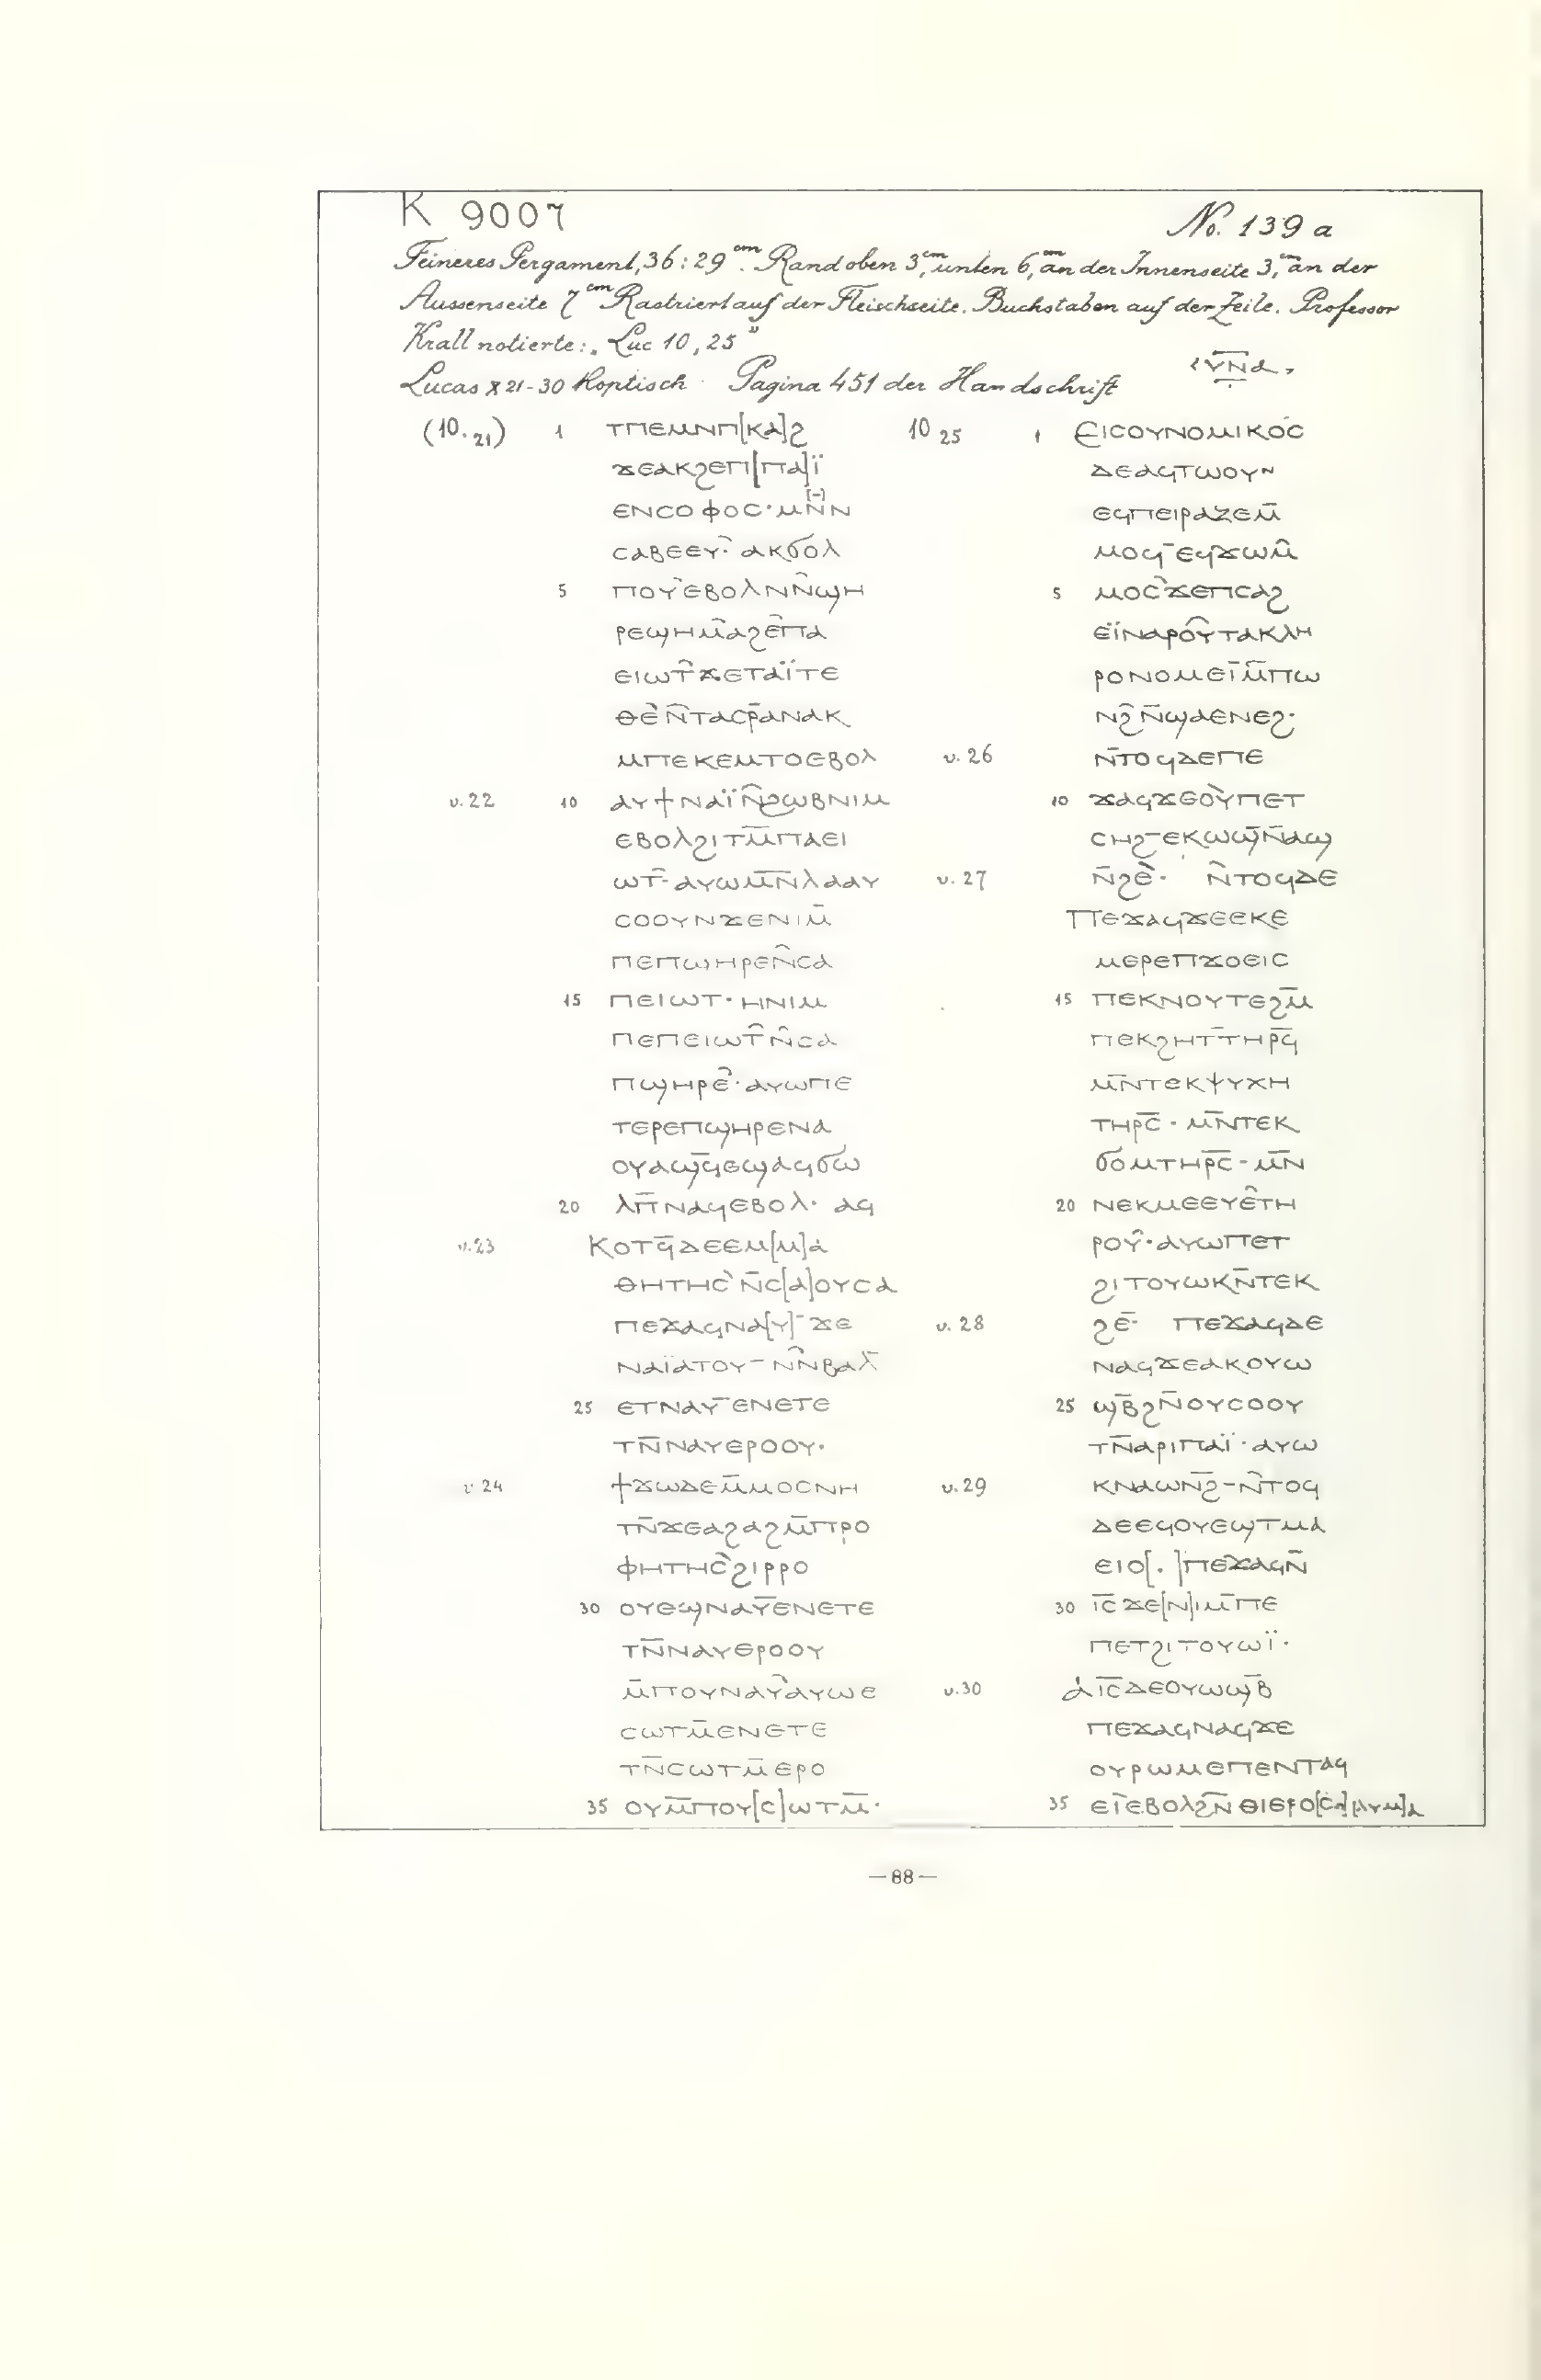 K 9007
No. 139 a
Feineres Pergament, 36 : 29 cm. Rand oben 3 cm, unten 6 cm, an der Innenseite 3 cm, an der
Aussenseite 7 cm Rastriert auf der Fleischseite. Buchstaben auf der Zeile. Professor
Krall notierte: „Luc 10, 25"
Lucas X 21-30 Koptisch Pagina 451 der Handschrift
ⲩ̅ⲛ̅ⲁ
(10.21) 1 ⲧⲡⲉⲙⲛⲡ[ⲕⲁ]ϩ
ϫⲉⲁⲕϩⲉⲡ[ⲡⲁ]ⲓ̈
ⲉⲛⲥⲟⲫⲟⲥ·ⲙⲛ̅ⲛ
ⲥⲁⲃⲉⲉⲩ·̂ ⲁⲕϭⲟⲗ
5 ⲡⲟⲩ̀ⲉⲃⲟⲗⲛⲛ̂ϣⲏ
ⲣⲉϣⲏⲙ̂ⲁϩⲉ̂ⲡⲁ
ⲉⲓⲱⲧ̂ϫⲉⲧⲁⲓ̈ⲧⲉ
ⲑⲉ̀ⲛ̂ⲧⲁⲥⲣ̅ⲁⲛⲁⲕ
ⲙⲡⲉⲕⲉⲙⲧⲟⲉⲃⲟⲗ
v.22 10 ⲁⲩϯⲛⲁⲓ̈ⲛ̂ϩⲱⲃⲛⲓⲙ
ⲉⲃⲟⲗϩⲓⲧⲙ̅ⲡⲁⲉⲓ
ⲱⲧ̂-ⲁⲩⲱⲙ̅ⲛ̅ⲗⲁⲁⲩ
ⲥⲟⲟⲩⲛϫⲉⲛⲓⲙ̅
ⲡⲉⲡϣⲏⲣⲉⲛ̂ⲥⲁ
15 ⲡⲉⲓⲱⲧ·ⲏⲛⲓⲙ
ⲡⲉⲡⲉⲓⲱⲧ̂ⲛ̂ⲥⲁ
ⲡϣⲏⲣⲉ̂·ⲁⲩⲱⲡⲉ
ⲧⲉⲣⲉⲡϣⲏⲣⲉⲛⲁ
ⲟⲩⲁϣϥ̅ⲉϣⲁϥϭⲱ
20 ⲗⲡ̅ⲛⲁϥⲉⲃⲟⲗ· ⲁϥ
v.23 ⲕⲟⲧϥ̅ⲇⲉⲉⲙ[ⲙ]ⲁ
ⲑⲏⲧⲏⲥ̀ⲛ̅ⲥ[ⲁ]ⲟⲩⲥⲁ
ⲡⲉϫⲁϥⲛⲁ[ⲩ]-ϫⲉ
ⲛⲁⲓ̈ⲁⲧⲟⲩ-ⲛⲛ̂ⲃⲁⲗ̅
25 ⲉⲧⲛⲁⲩ̅ⲉⲛⲉⲧⲉ
ⲧⲛ̅ⲛⲁⲩⲉⲣⲟⲟⲩ·
v.24 ϯϫⲱⲇⲉⲙ̅ⲙⲟⲥⲛⲏ
ⲧⲛ̅ϫⲉⲁϩⲁϩⲙ̅ⲡⲣⲟ
ⲫⲏⲧⲏⲥ̀ϩⲓⲣⲣⲟ
30 ⲟⲩⲉϣⲛⲁⲩ̅ⲉⲛⲉⲧⲉ
ⲧⲛ̅ⲛⲁⲩⲉⲣⲟⲟⲩ
ⲙ̅ⲡⲟⲩⲛⲁⲩ̂ⲁⲩⲱⲉ
ⲥⲱⲧⲙ̅ⲉⲛⲉⲧⲉ
ⲧⲛ̅ⲥⲱⲧⲙ̅ⲉⲣⲟ
35 ⲟⲩⲙ̅ⲡⲟⲩ[ⲥ]ⲱⲧⲙ̅·
10 25 1 ⲉⲓⲥⲟⲩⲛⲟⲙⲓⲕⲟⲥ
ⲇⲉⲁϥⲧⲱⲟⲩⲛ
ⲉϥⲡⲉⲓⲣⲁⲍⲉⲙ̅
ⲙⲟϥ-ⲉϥϫⲱⲙ̂
5 ⲙⲟⲥ̀ϫⲉⲡⲥⲁϩ
ⲉⲓ̈ⲛⲁⲣⲟⲩ̂ⲧⲁⲕⲗⲏ
ⲣⲟⲛⲟⲙⲉⲓ̅ⲙ̅ⲡⲱ
ⲛϩ̂ⲛ̅ϣⲁⲉⲛⲉϩ·
v.26 ⲛ̅ⲧⲟϥⲇⲉⲡⲉ
10 ϫⲁϥϫⲉⲟⲩ̀ⲡⲉⲧ
ⲥⲏϩ-ⲉⲕⲱϣ̅ⲛ̅ⲁϣ
v.27 ⲛ̅ϩⲉ̀· ⲛ̂ⲧⲟϥⲇⲉ
ⲡⲉϫⲁϥϫⲉⲉⲕⲉ
ⲙⲉⲣⲉⲡϫⲟⲉⲓⲥ
15 ⲡⲉⲕⲛⲟⲩⲧⲉϩⲙ̅
ⲡⲉⲕϩⲏⲧ̅ⲧⲏⲣϥ̅
ⲙ̅ⲛⲧⲉⲕⲯⲩⲭⲏ
ⲧⲏⲣⲥ̅·ⲙ̅ⲛⲧⲉⲕ
ϭⲟⲙⲧⲏⲣⲥ̅-ⲙ̅ⲛ
20 ⲛⲉⲕⲙⲉⲉⲩⲉ̂ⲧⲏ
ⲣⲟⲩ̂·ⲁⲩⲱⲡⲉⲧ
ϩⲓⲧⲟⲩⲱⲕⲛ̅ⲧⲉⲕ
v.28 ϩⲉ̅· ⲡⲉϫⲁϥⲇⲉ
ⲛⲁϥϫⲉⲁⲕⲟⲩⲱ
25 ϣⲃ̅ϩⲛ̅ⲟⲩⲥⲟⲟⲩ
ⲧⲛ̅ⲁⲣⲓⲡⲁⲓ̈·ⲁⲩⲱ
v.29 ⲕⲛⲁⲱⲛϩ̅-ⲛ̂ⲧⲟϥ
ⲇⲉⲉϥⲟⲩⲉϣⲧⲙⲁ
ⲉⲓⲟ[.]ⲡⲉϫⲁϥⲛ̅
30 ⲓ̅ⲥ̅ ϫⲉ[ⲛ]ⲓⲙ̅ⲡⲉ
ⲡⲉⲧϩⲓⲧⲟⲩⲱⲓ̈·
v.30 ⲁⲓ̅ⲥ̅ⲇⲉⲟⲩⲱϣⲃ̅
ⲡⲉϫⲁϥⲛⲁϥϫⲉ
ⲟⲩⲣⲱⲙⲉⲡⲉⲛⲧⲁϥ
35 ⲉⲓ̅ⲉⲃⲟⲗϩⲛ̅ⲑⲓⲉⲣⲟ[ⲥⲟ]ⲗ[ⲩⲙ]ⲁ
— 88 —